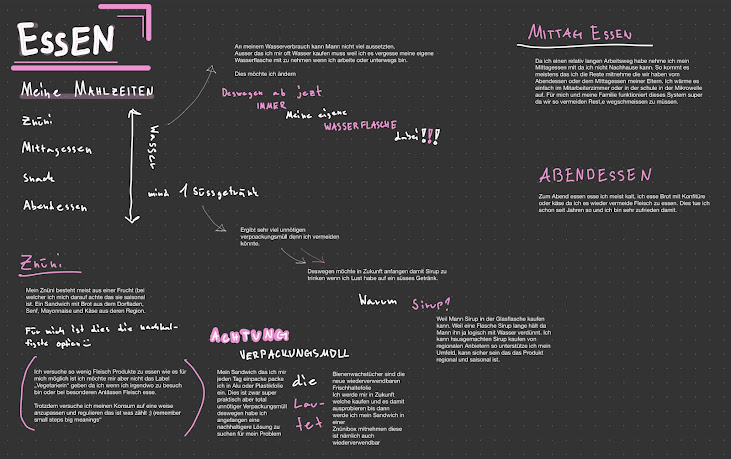 ESSEN
Meine MAHLZEITEN
Znüni
Mittagessen
Snack
Abendessen
Wasser
mind 1 Süssgetränk
An meinem Wasserverbrauch kann Mann nicht viel aussetzten,
Ausser das ich mir oft Wasser kaufen muss weil ich es vergesse meine eigene
Wasserflasche mit zu nehmen wenn ich arbeite oder unterwegs bin.
Dies möchte ich ändern
Deswegen ab jezt
IMMER
Meine eigene
WASSERFLASCHE
dabei!!!
Ergibt sehr viel unnötigen
verpoackungsmüll denn ich vermeiden
könnte.
Deswegen möchte in Zukunft anfangen damit Sirup zu
trinken wenn ich Lust habe auf ein süsses Getränk.
Warum Sirup?
Weil Mann Sirup in der Glasflasche kaufen
kann. Weil eine Flasche Sirup lange hält da
Mann ihn ja logisch mit Wasser verdünnt. Ich
kann hausgemachten Sirup kaufen von
regionalen Anbietern so unterstütze ich mein
Umfeld, kann sicher sein das das Produkt
regional und saisonal ist.
MITTAG ESSEN
Da ich einen relativ langen Arbeitsweg habe nehme ich mein
Mittagessen mit da ich nicht Nachhause kann. So kommt es
meistens das ich die Reste mitnehme die wir haben vom
Abendessen oder dem Mittagessen meiner Eltern. Ich wärme es
einfach im Mitarbeiterzimmer oder in der schule in der Mikrowelle
auf. Für mich und meine Familie funktioniert dieses System super
da wir so vermeiden Rest,e wegschmeissen zu müssen.
ABENDESSEN
Zum Abend essen esse ich meist kalt, ich esse Brot mit Konfitüre
oder käse da ich es wieder vermeide Fleisch zu essen. Dies tue ich
schon seit Jahren so und ich bin sehr zufrieden damit.
Znüni
Mein Znüni besteht meist aus einer Frucht (bei
welcher ich mich darauf achte das sie saisonal
ist. Ein Sandwich mit Brot aus dem Dorfladen,
Senf, Mayonnaise und Käse aus deren Region.
Für mich ist dies die nachhal-
tigste option
Ich versuche so wenig Fleisch Produkte zu essen wie es für
mich möglich ist ich möchte mir aber nicht das Label
„Vegetarierin“ geben da ich wenn ich irgendwo zu besuch
bin oder bei besonderen Anlässen Fleisch esse.
Trotzdem versuche ich meinen Konsum auf eine weise
anzupassen und regulieren das ist was zählt ;) (remember
small steps big meanings“
ACHTUNG
VERPACKUNGSMÜLL
Mein Sandwich das ich mir
jeden Tag einpacke packe
ich in Alu oder Plastikfolie
ein. Dies ist zwar super
praktisch aber total
unnötiger Verpackungsmüll
deswegen habe ich
angefangen eine
nachhaltigere Lösung zu
suchen für mein Problem
die
Lau-
tet
Bienenwachstücher sind die
neue wiederverwendbaren
Frischhaltefolie
Ich werde mir in Zukunft
welche kaufen und es damit
ausprobieren bis dann
werde ich mein Sandwich in
einer
Znünibox mitnehmen diese
ist nämlich auch
wiederverwendbar